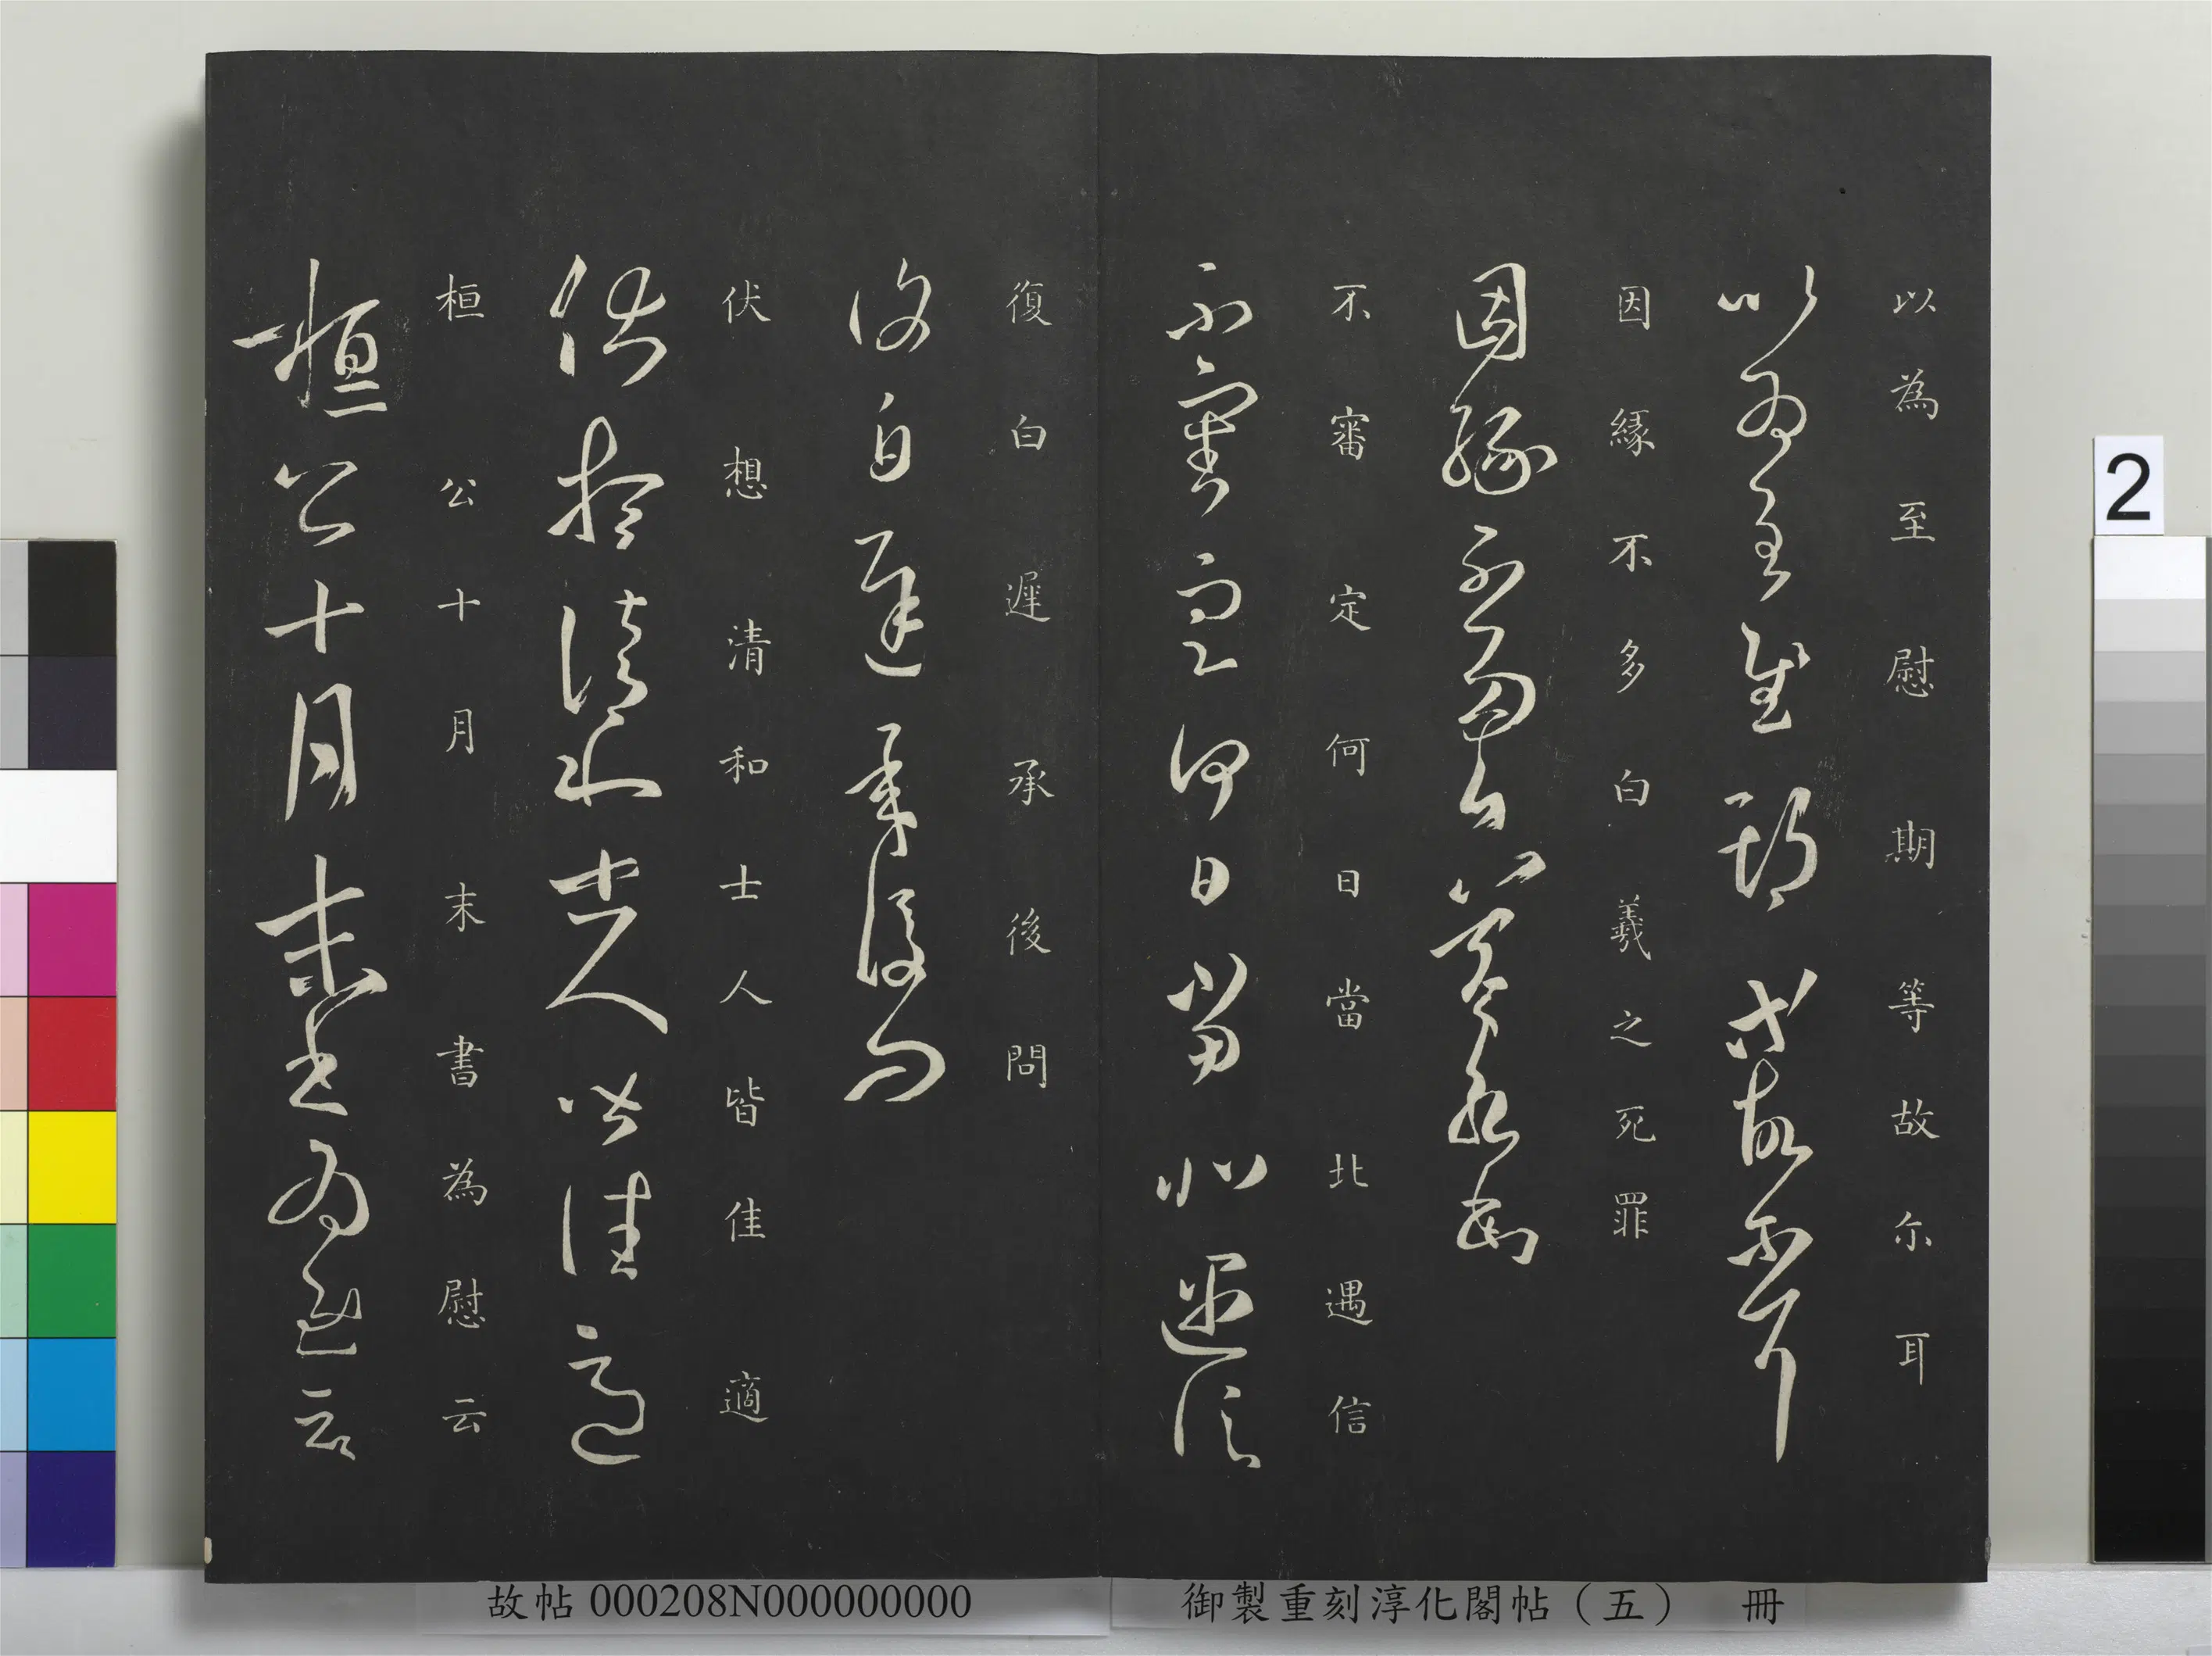 以為至慰期等故尓耳
以為至慰期等故尓耳
因緣不多白羲之死罪
因緣不多白羲之死罪
不審定何日當北遇信
不審定何日當北遇信
復白遲承後問
復白遲承後問
伏想清和士人皆佳適
伏想清和士人皆佳適
桓公十月末書為慰云
桓公十月末書為慰云
2
故帖 000208N000000000
御製重刻淳化閣帖（五） 冊